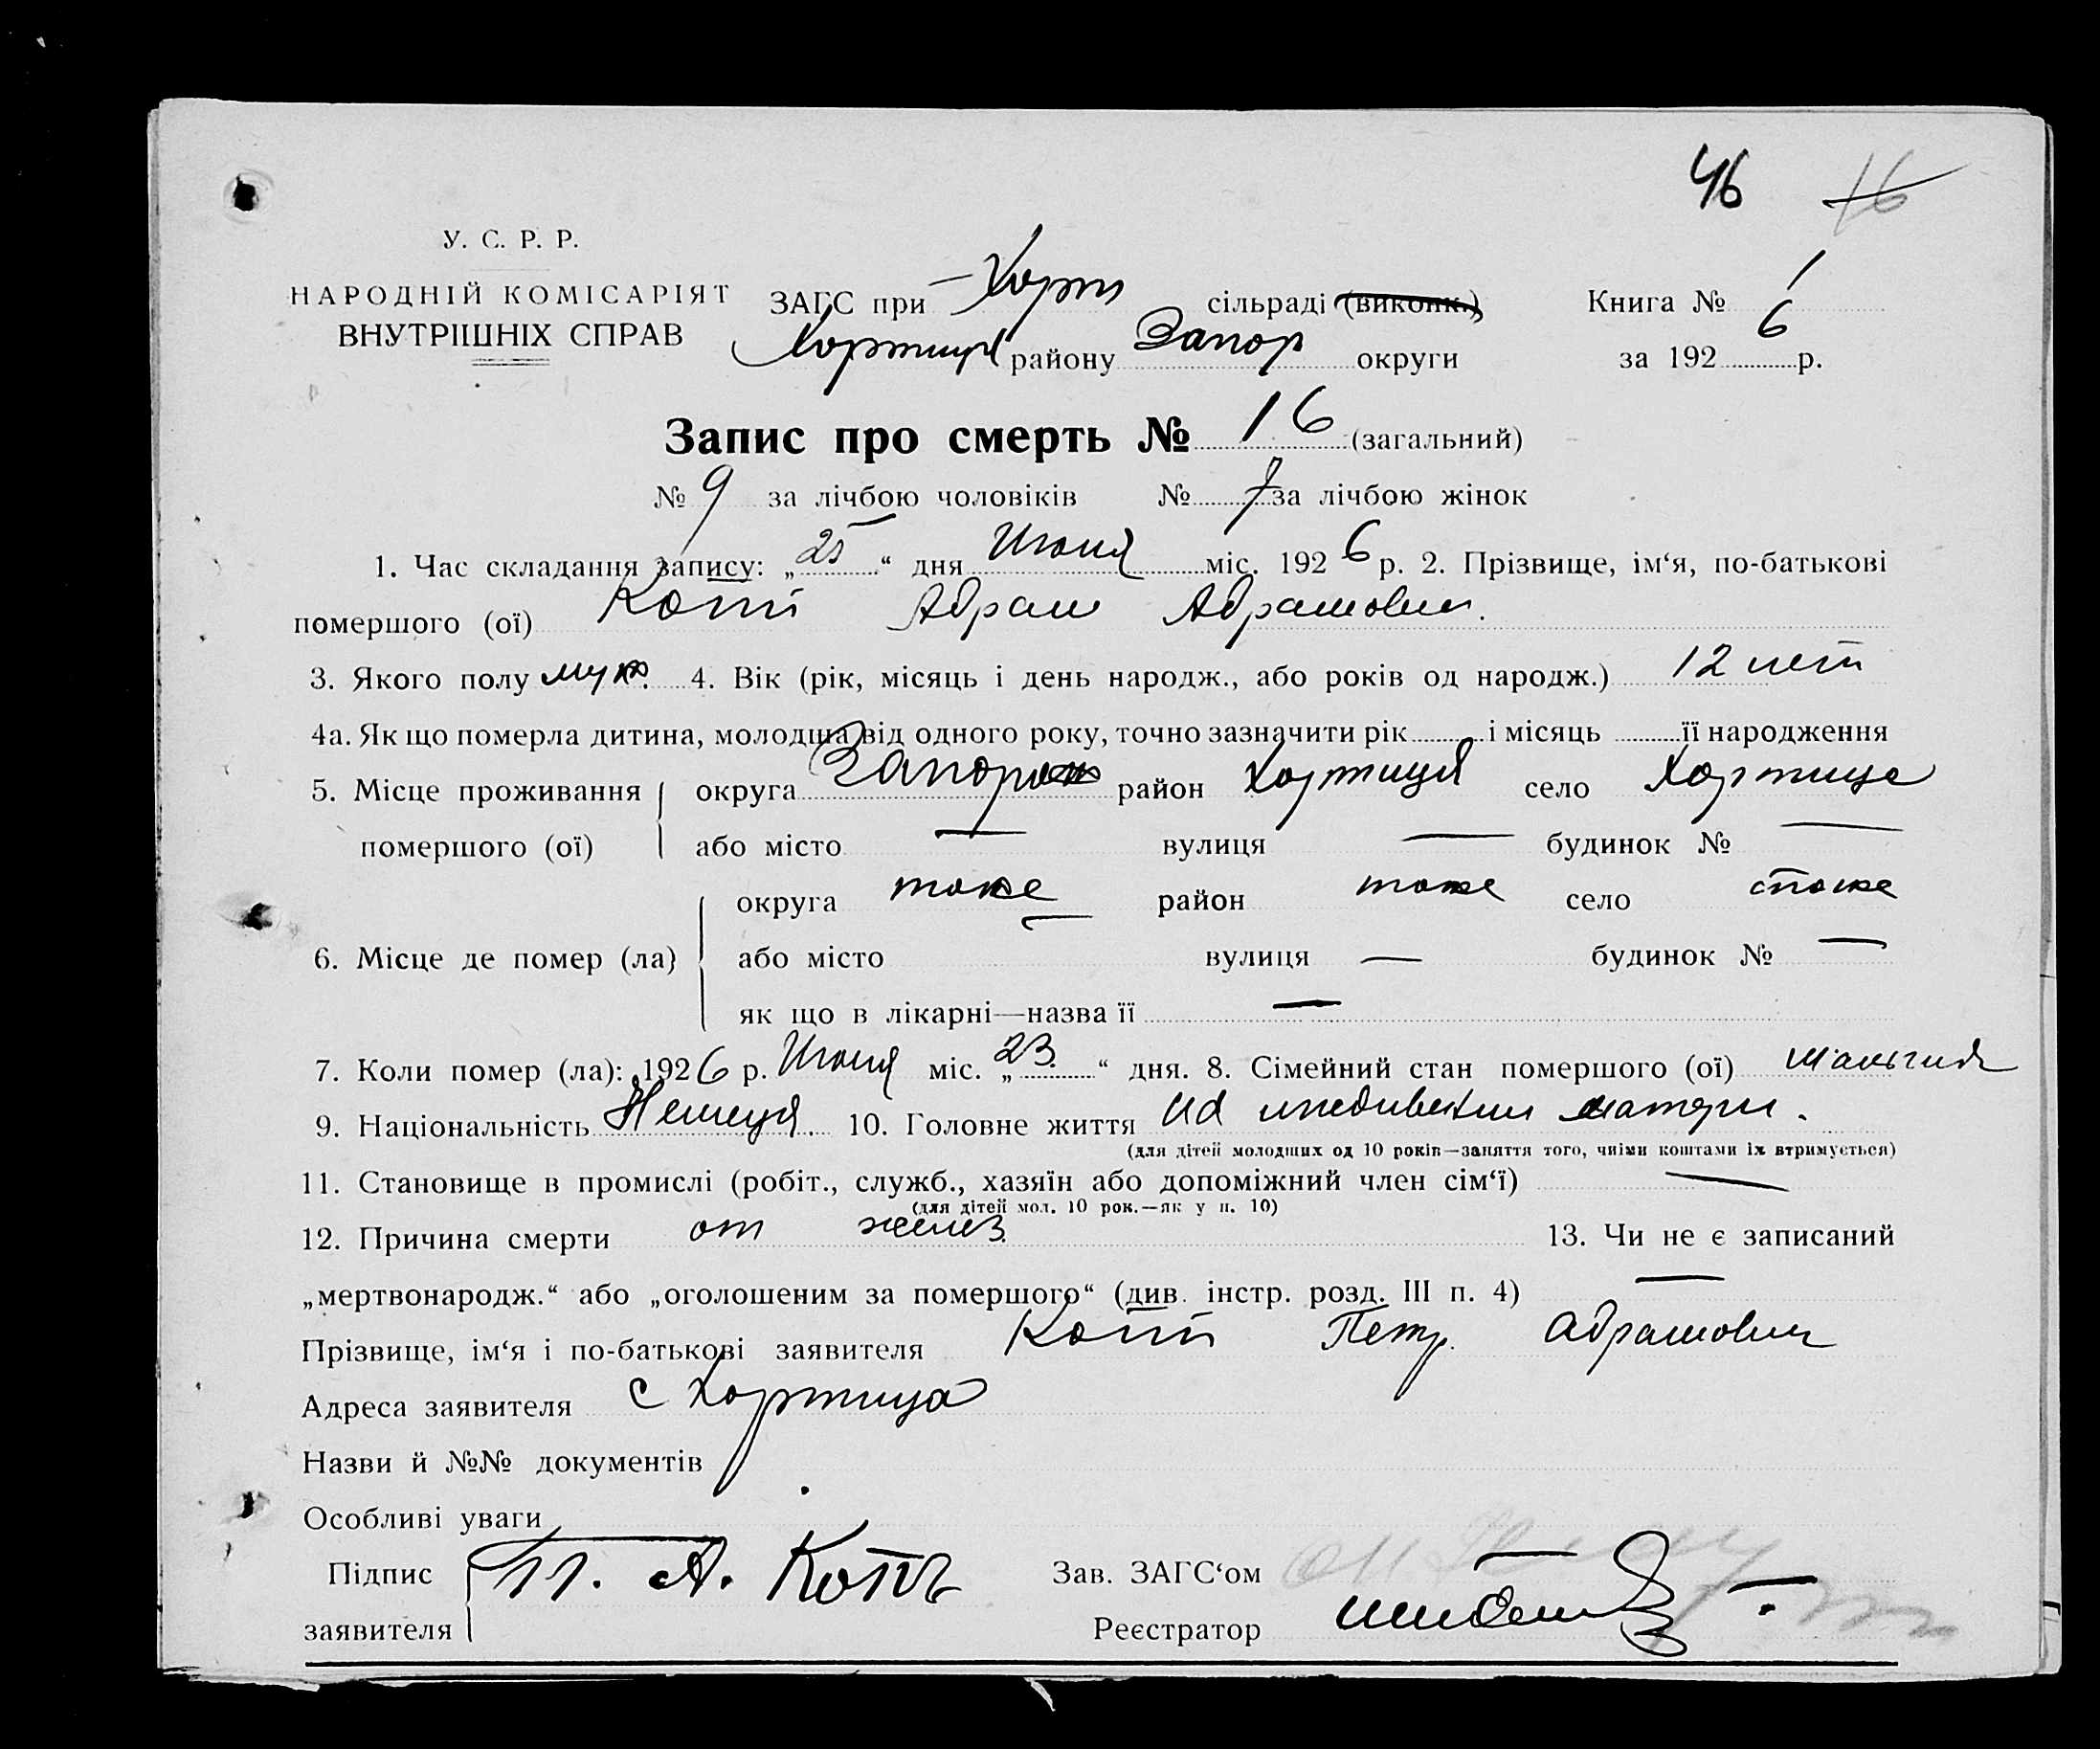 46 16
У. С. Р. Р.
НАРОДНІЙ КОМІСАРІЯТ
ВНУТРІШНІХ СПРАВ
ЗАГС при Хорт сільраді (виконк.)
Хортиця району Запор округи
Книга № 1
за 1926 р.
Запис про смерть № 16 (загальний)
№ 9 за лічбою чоловіків № 7 за лічбою жінок
1. Час складання запису: „25“ дня Июня міс. 1926 р. 2. Прізвище, ім‘я, по-батькові
помершого (ої) Копп Абрам Абрамович.
3. Якого полу муж. 4. Вік (рік, місяць і день народж., або років од народж.) 12 лет
4а. Як що померла дитина, молодша від одного року, точно зазначити рік і місяць її народження
5. Місце проживання округа Запорож район Хортиця село Хортица
помершого (ої) або місто — вулиця — будинок № —
округа тоже район тоже село тоже
6. Місце де помер (ла) або місто — вулиця — будинок № —
як що в лікарні—назва її —
7. Коли помер (ла): 1926 р. Июня міс. „23“ дня. 8. Сімейний стан помершого (ої)
9. Національність 10. Головне життя На иждивении матери.
(для дітей молодших од 10 років—заняття того, чиїми коштами їх втримується)
11. Становище в промислі (робіт., служб., хазяїн або допоміжний член сім‘ї) —
(для дітей мол. 10 рок.—як у п. 10)
12. Причина смерти от желез 13. Чи не є записаний
„мертвонародж.“ або „оголошеним за помершого“ (див. інстр. розд. III п. 4) —
Прізвище, ім‘я і по-батькові заявителя Копп Петр. Абрамович
Адреса заявителя с Хортица
Назви й №№ документів
Особливі уваги
Підпис П. А. Коппъ Зав. ЗАГС‘ом
заявителя Реєстратор